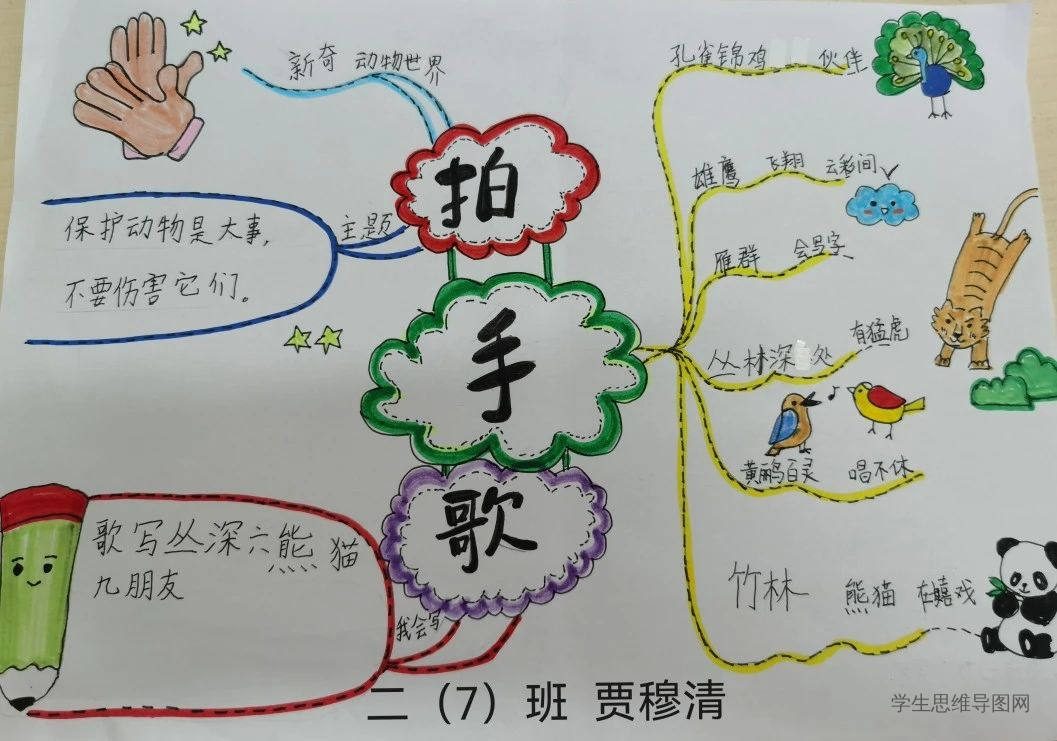 新奇 动物世界
拍手歌
主题
保护动物是大事,
不要伤害它们。
我会写
歌写丛深六熊猫
九朋友
孔雀锦鸡 伙伴
雄鹰 飞翔 云彩间
雁群 会写字
丛林深处 有猛虎
黄鹂百灵 唱不休
竹林 熊猫 在嬉戏
二（7）班 贾穆清
学生思维导图网